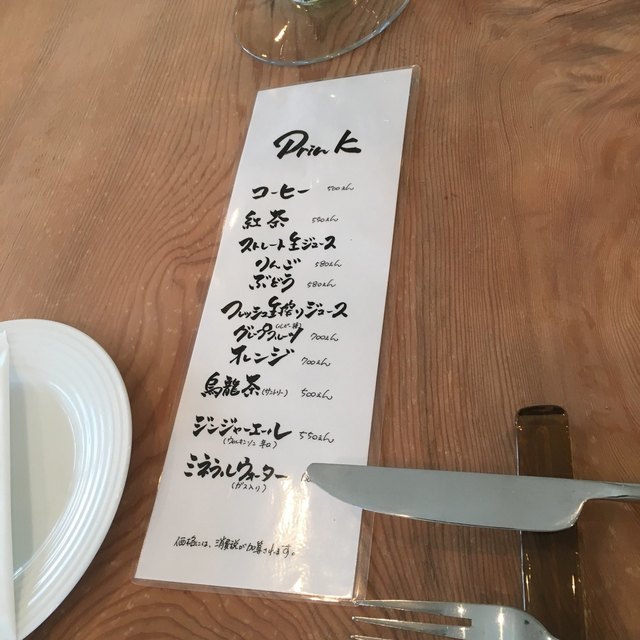 Drink
コーヒー 500えん
紅茶 550えん
ストレート生ジュース
りんご 580えん
ぶどう 580えん
フレッシュ生搾りジュース
グレープフルーツ 700えん
オレンジ 700えん
烏龍茶(サントリー) 500えん
ジンジャーエール 550えん
(ウィルキンソン 辛口)
ミネラルウォーター
(ガス入り)
価格には、消費税が加算されます。